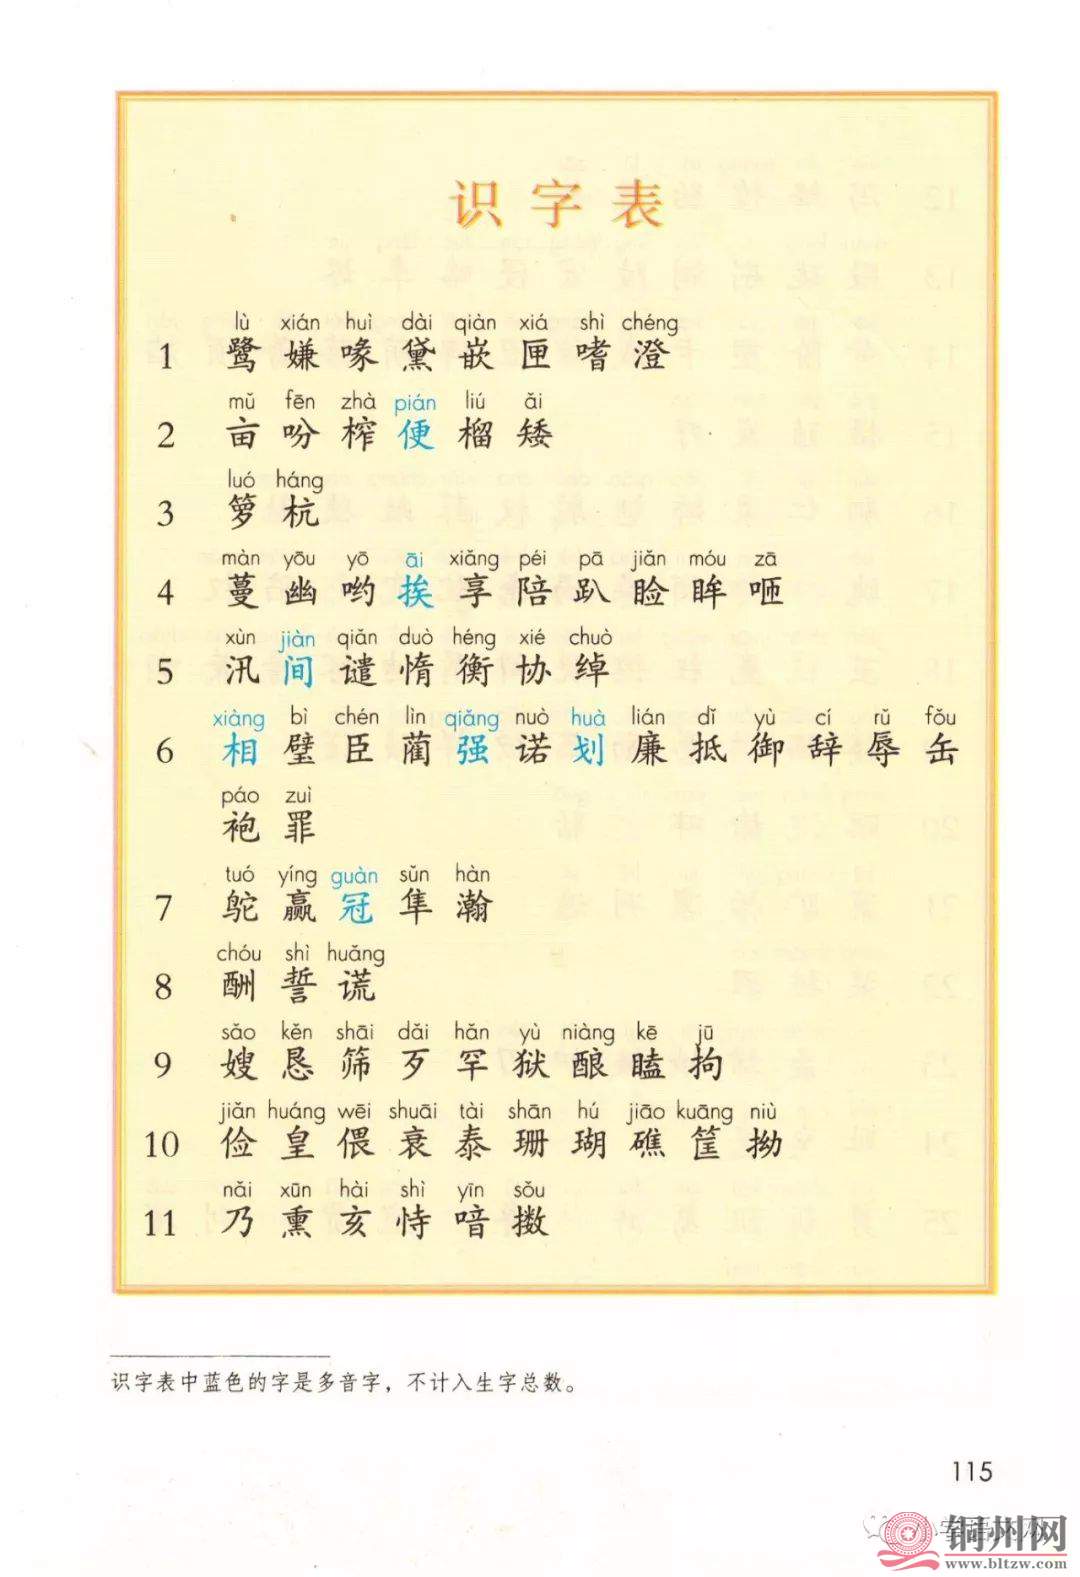 识字表
lù xián huì dài qiàn xiá shì chéng
1 鹭 嫌 喙 黛 嵌 匣 嗜 澄
mǔ fēn zhà pián liú ǎi
2 亩 吩 榨 便 榴 矮
luó háng
3 箩 杭
màn yōu yō āi xiǎng péi pā jiǎn móu zā
4 蔓 幽 哟 挨 享 陪 趴 睑 眸 咂
xùn jiàn qiǎn duò héng xié chuò
5 汛 间 谴 惰 衡 协 绰
xiàng bì chén lìn qiǎng nuò huà lián dǐ yù cí rǔ fǒu
6 相 璧 臣 蔺 强 诺 划 廉 抵 御 辞 辱 缶
páo zuì
袍 罪
tuó yíng guàn sǔn hàn
7 鸵 赢 冠 隼 瀚
chóu shì huǎng
8 酬 誓 谎
sǎo kěn shāi dǎi hǎn yù niàng kē jū
9 嫂 恳 筛 歹 罕 狱 酿 瞌 拘
jiǎn huáng wēi shuāi tài shān hú jiāo kuāng niù
10 俭 皇 偎 衰 泰 珊 瑚 礁 筐 拗
nǎi xūn hài shì yīn sǒu
11 乃 熏 亥 恃 喑 擞
识字表中蓝色的字是多音字，不计入生字总数。
115
铜州网
www.bltzw.com